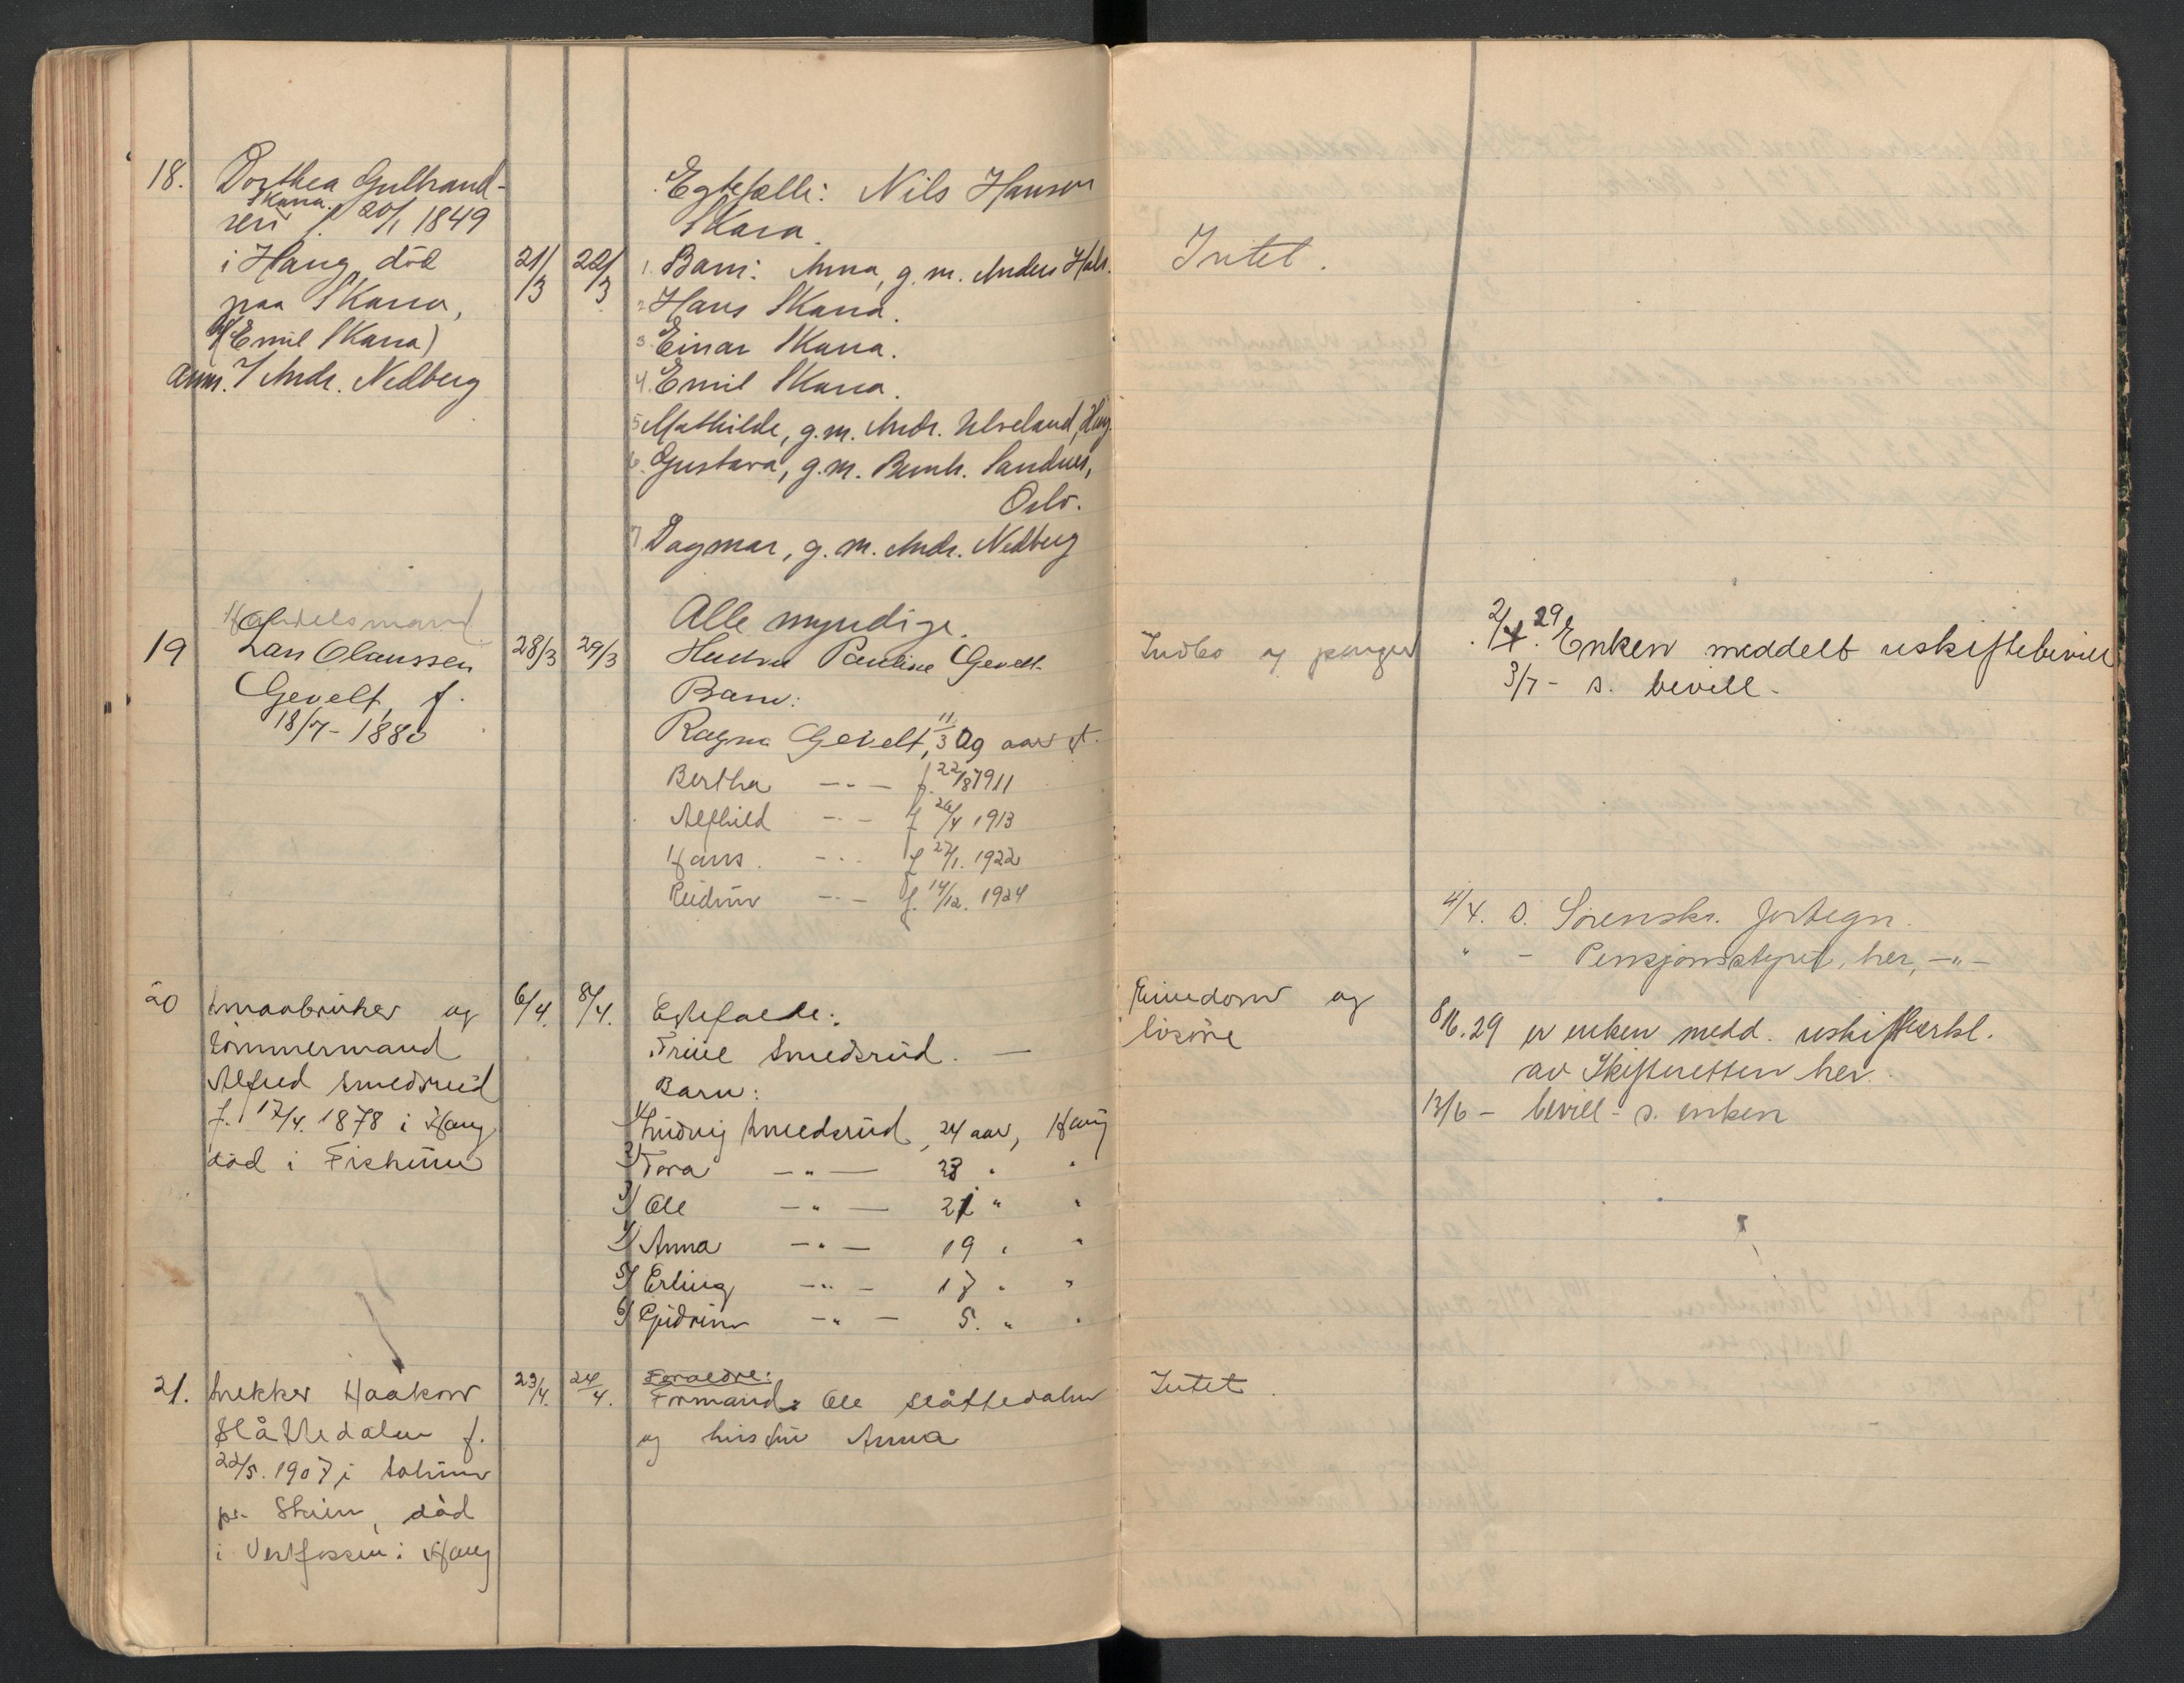 18. Dorthea Gulbrand-
sen Skara f. 20/1 1849
i Haug, död
paa Skara,
(Emil Skara)
Anm. / Andr. Nedberg
21/3
22/3
Egtefælle: Nils Hansen
Skara.
1. Barn: Anna, g. m. Anders Hals.
2. Hans Skara.
3. Einar Skara.
4. Emil Skara.
5 Mathilde, g. m. Andr. Ulveland, Haug.
6. Gustava, g. m. Bernh. Sandnes,
Oslo.
7 Dagmar, g. m. Andr. Nedberg
Alle myndige.
Intet.
19
Handelsmand
Lars Olaussen
Gevelt, f.
18/7 - 1880
28/3
29/3
Hustru Pauline Gevelt
Barn:
Ragna Gevelt, 11/3 09 aar
Bertha -"- f. 22/8 1911
Alfhild -"- f 26/4 1913
Hans. -"- f 27/1. 1922
Reidun -"- f. 14/12. 1924
Indbo og penger
2/4. 29 Enken meddelt uskiftebevill
3/7 - s. bevill.
4/4. s. Sorenskr. fortegn.
" - Pensjonsstyret, her, -"-
20 Smaabruker og
tömmermand
Alfred Smedsrud
f. 17/4. 1878 i Haug
död i Fiskum
6/4.
8/4.
Egtefælle:
Trine Smedsrud. —
Barn:
1/ Ludvig Smedsrud, 24 aar, Haug
2/ Tora -"- 23 " "
3/ Ole -"- 21 " "
4/ Anna -"- 19 " "
5/ Erling -"- 17 " "
6/ Gudrun -"- 5. " "
Eiendom og
lösöre
8/6. 29 er enken medd. uskifteerkl.
av Skifteretten her.
13/6 - bevill - s. enken
21. Snekker Haakon
Slåttedalen f.
22/5. 1907 i Solum
pr. Skien, död
i Vestfossen i Haug
23/4.
24/4.
Foraeldre:
Formand Ole Slåttedalen
og hustru Anna
Intet.